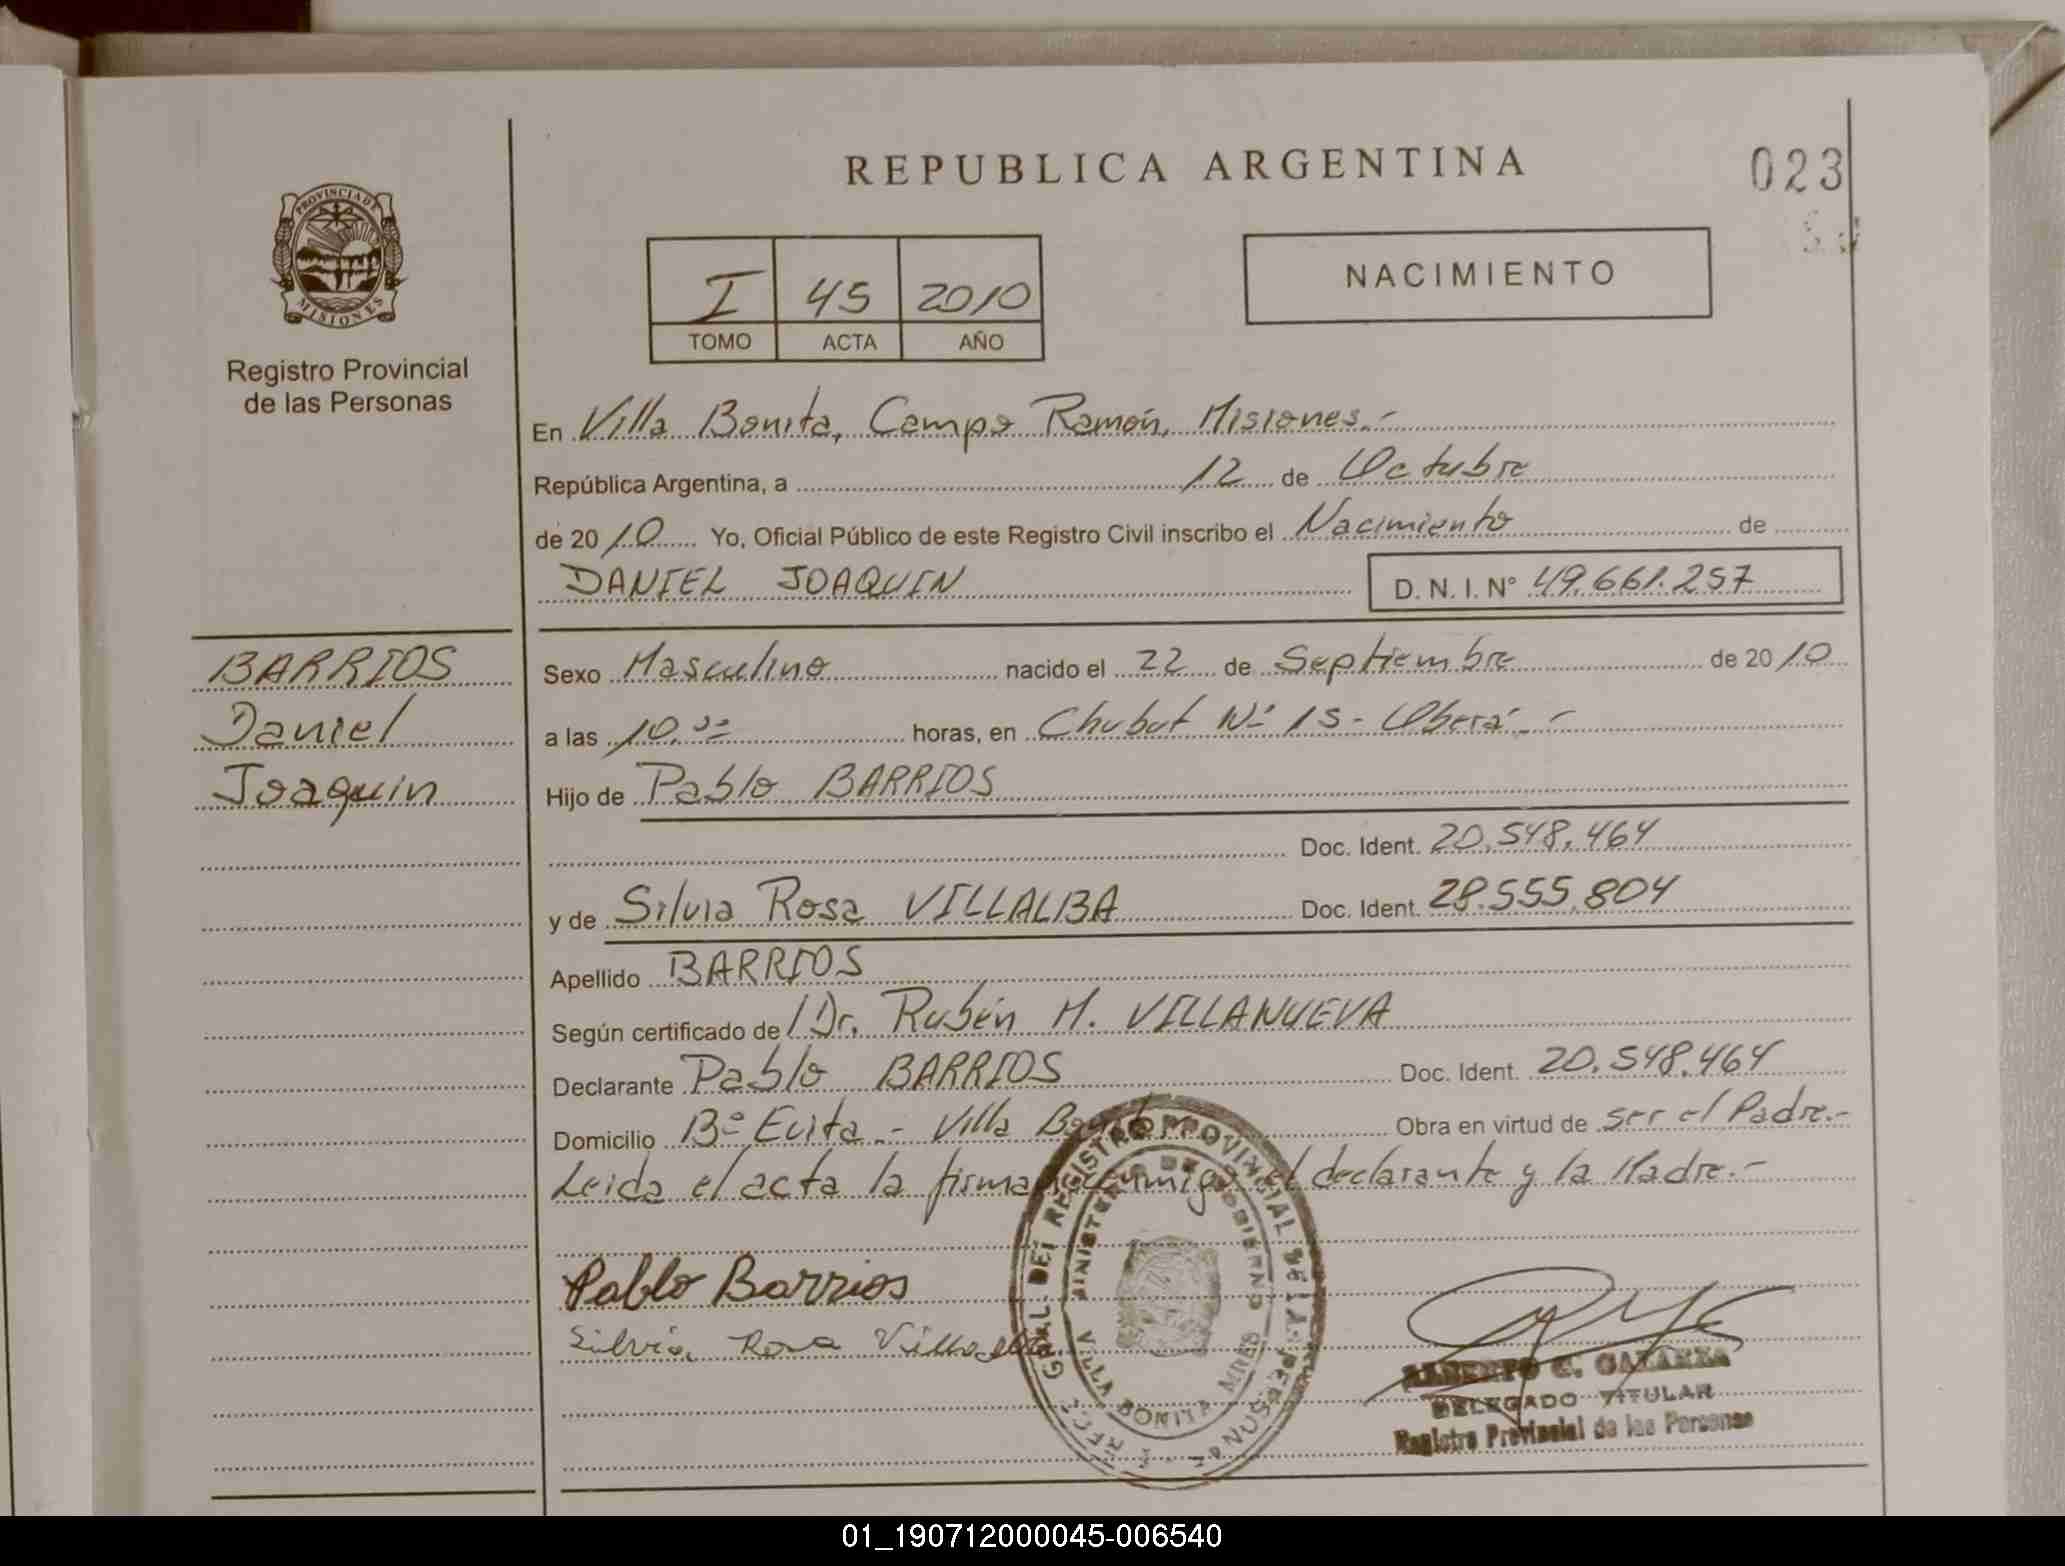 REPUBLICA ARGENTINA
023
PROVINCIA DE
MISIONES
Registro Provincial
de las Personas
I 45 2010
TOMO ACTA AÑO
NACIMIENTO
En Villa Bonita, Campo Ramón, Misiones.-
República Argentina, a 12 de Octubre
de 2010 Yo, Oficial Público de este Registro Civil inscribo el Nacimiento de
DANIEL JOAQUIN D. N. I. N° 49.661.257
BARRIOS
Daniel
Joaquin
Sexo Masculino nacido el 22 de Septiembre de 2010
a las 10.00 horas, en Chubut Nº 15 - Oberá.-
Hijo de Pablo BARRIOS
Doc. Ident. 20.548.464
y de Silvia Rosa VILLALBA Doc. Ident. 28.555.804
Apellido BARRIOS
Según certificado de Dr. Rubén M. VILLANUEVA
Declarante Pablo BARRIOS Doc. Ident. 20.548.464
Domicilio Bº Evita.- Villa Bonita Obra en virtud de ser el Padre.-
Leida el acta la firman conmigo el declarante y la Madre.-
Pablo Barrios
Silvia Rosa Villalba
GRAL. DEL REGISTRO PROVINCIAL DE LAS PERSONAS
MINISTERIO DE GOBIERNO
VILLA BONITA MNES
C. GALARZA
DELEGADO TITULAR
Registro Provincial de las Personas
01_190712000045-006540